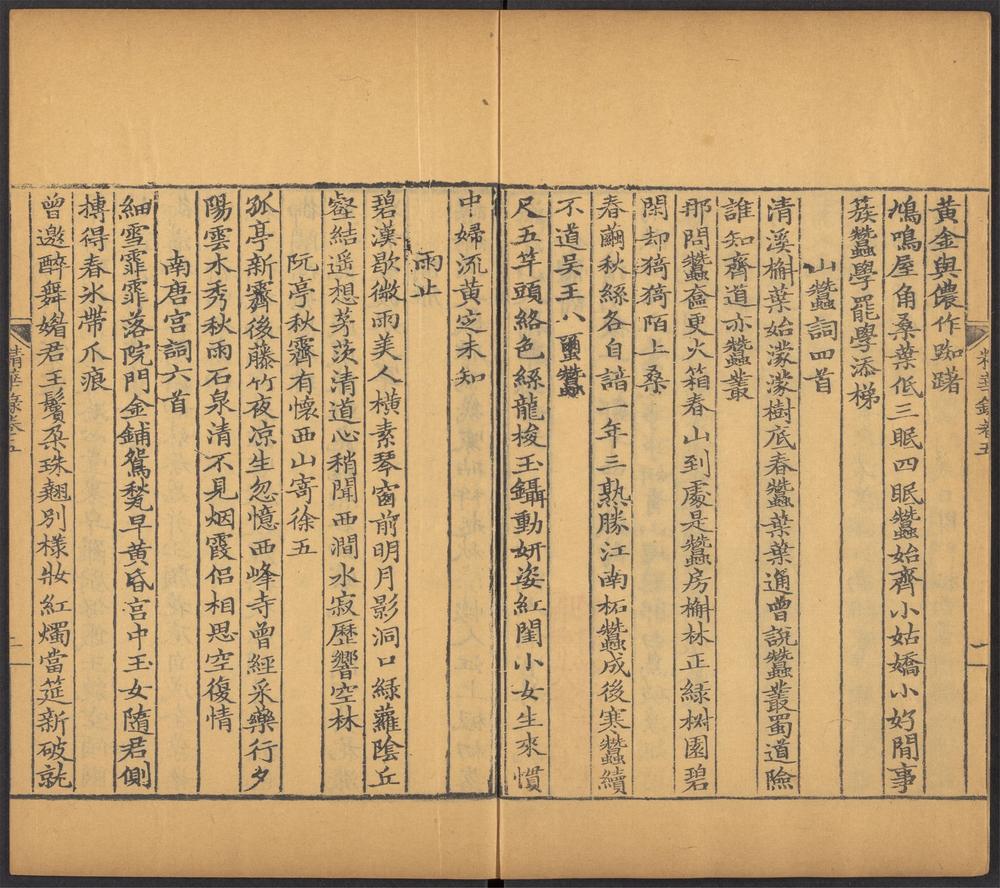 精華錄卷五
黃金與儂作踟躇
鳩鳴屋角桑葉低三眠四眠蠶始齊小姑嬌小好閒事
簇蠶學罷學添梯
山蠶詞四首
清溪槲葉始濛濛樹底春蠶葉葉通曾說蠶叢蜀道險
誰知齊道亦蠶叢
那問蠶奩更火箱春山到處是蠶房槲林正綠樹園碧
閑却猗猗陌上桑
春繭秋絲各自諳一年三熟勝江南柘蠶成後寒蠶續
不道吳王八蠒蠶
尺五竿頭絡色絲龍梭玉鑷動妍姿紅閨小女生來慣
中婦流黃定未知
雨止
碧漢歇微雨美人橫素琴窗前明月影洞口綠蘿陰丘
壑結遥想茅茨清道心稍聞西澗水寂歷響空林
阮亭秋霽有懷西山寄徐五
孤亭新霽後藤竹夜凉生忽憶西峰寺曾經采藥行夕
陽雲木秀秋雨石泉清不見烟霞侶相思空復情
南唐宮詞六首
細雪霏霏落院門金鋪鴛甃早黃昏宮中玉女隨君側
摶得春氷帶爪痕
曾邀醉舞媚君王鬢朶珠翹別樣妝紅燭當筵新破就
精華錄卷五